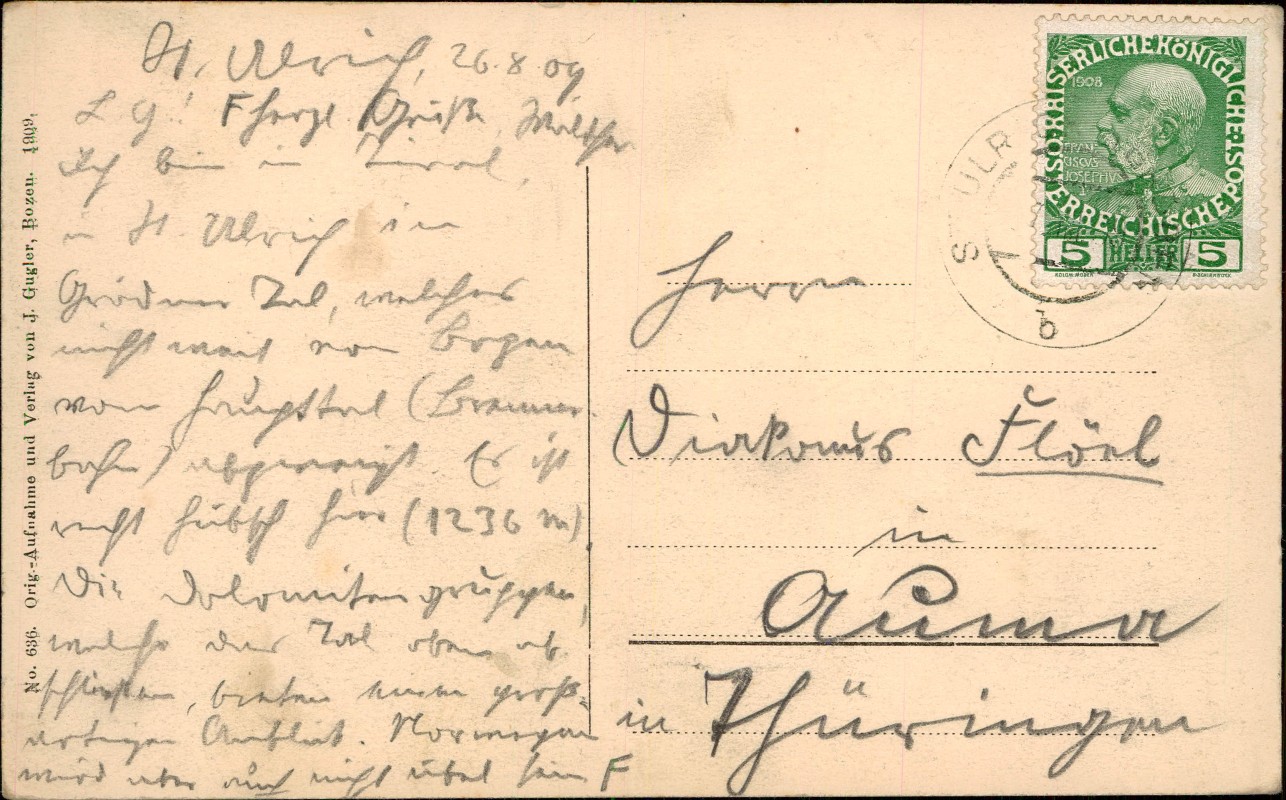 St. Ulrich, 26.8.09
L G! F herzl. Grüße Walther
Ich bin in Tirol,
in St. Ulrich im
Grödner Tal, welches
nicht weit von Bozen
vom Haupttal (Brenner-
bahn) abzweigt. Es ist
recht hübsch hier (1236 m).
Die Dolomitengruppen,
welche das Tal oben ab-
schließen, bieten einen groß-
artigen Anblick. Norwegen
wird aber auch nicht übel sein F
No. 636. Orig.-Aufnahme und Verlag von J. Gugler, Bozen. 1909.
Herrn
Diakonus Flöel
in
Auma
in Thüringen
KAISERLICHE KÖNIGLICHE
ÖSTERREICHISCHE POST
1908
FRAN
CISCVS
JOSEPHVS
5 HELLER 5
S ULR
b